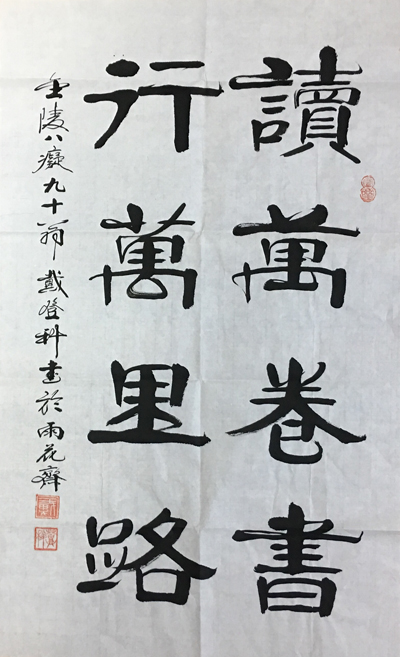 讀萬卷書
行萬里路
金陵八癡九十翁戴登科書於雨花齋